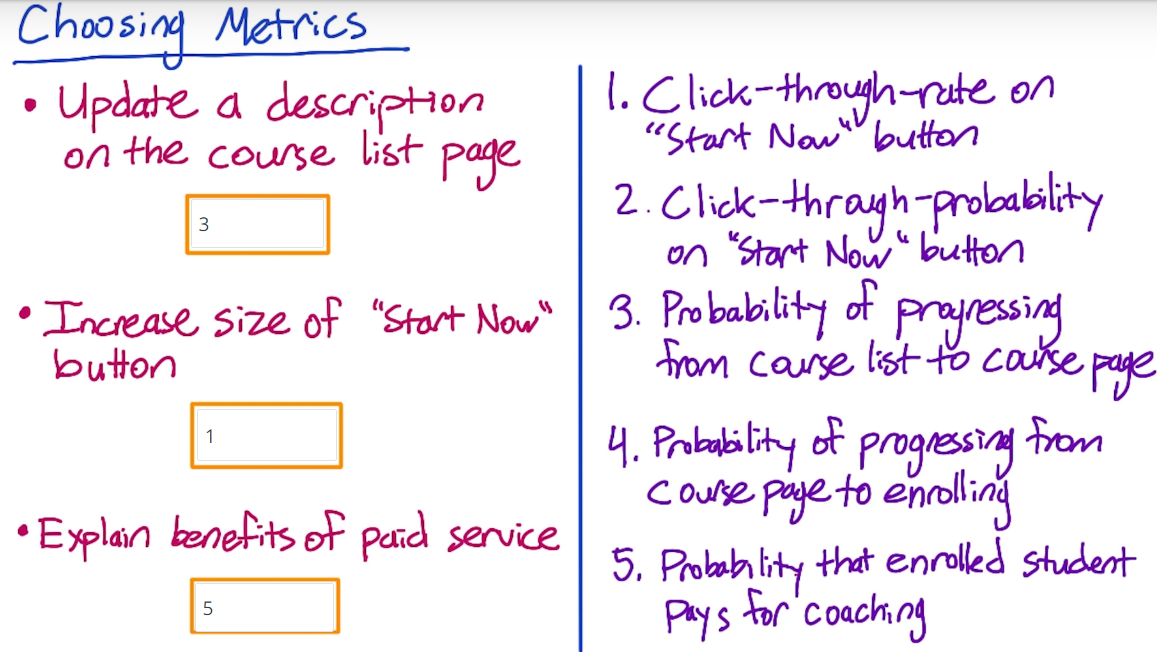 Choosing Metrics
• Update a description
on the course list page
3
• Increase size of "Start Now"
button
1
• Explain benefits of paid service
5
1. Click-through-rate on
"Start Now" button
2. Click-through-probability
on "Start Now" button
3. Probability of progressing
from course list to course page
4. Probability of progressing from
course page to enrolling
5. Probability that enrolled student
pays for coaching